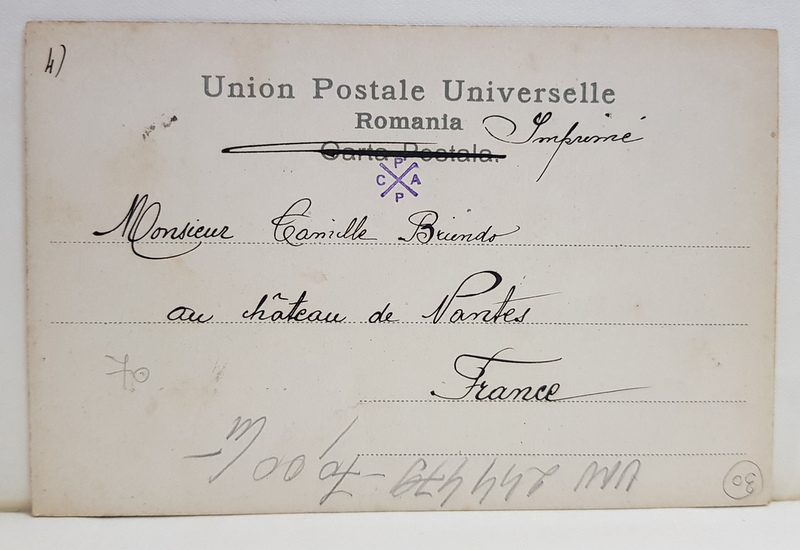 4)
Union Postale Universelle
Romania
Imprimé
Carta Postala.
P
C A
P
Monsieur Camille Briendo
au château de Nantes
France
30